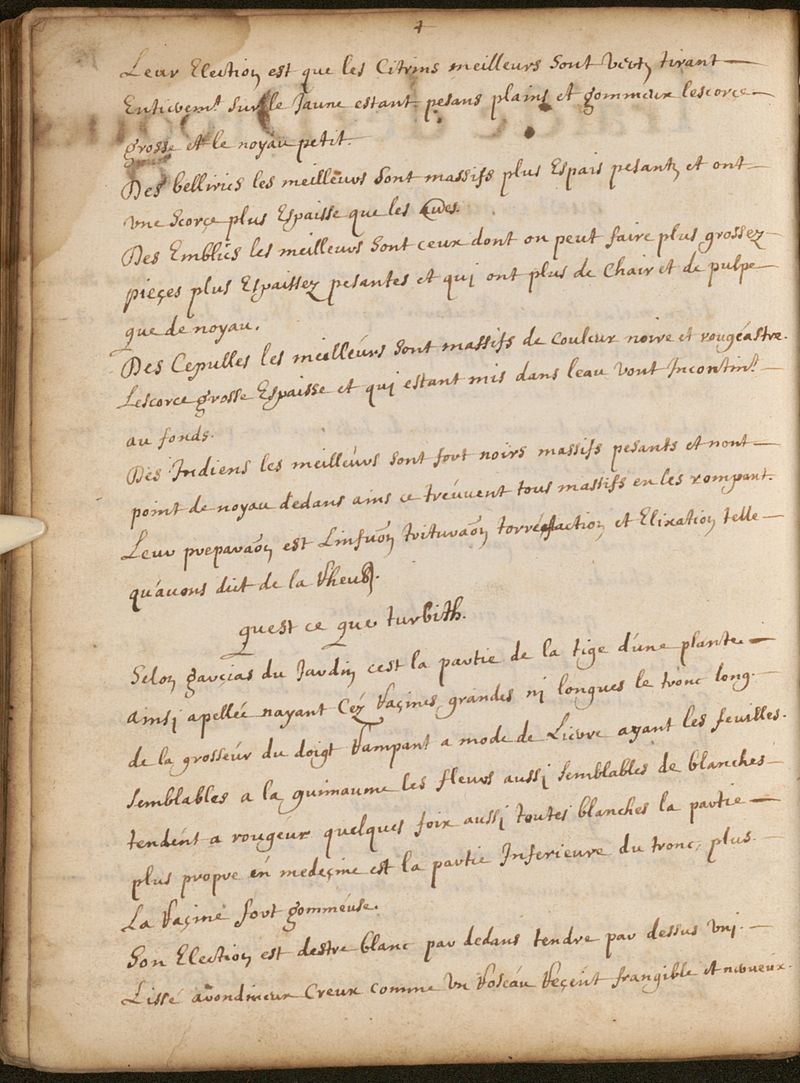 4
Leur Election est que les Citrins meilleurs sont vertz tirant
Entierem.t sur le Jaune estant pesans plains et gommeux lescorce
grosse et le noyau petit.
Des bellirics les meilleurs sont massifs plus Espais pesantz et ont
vne Scorçe plus Espaisse que les
Des Emblics les meilleurs sont ceux dont on peut faire plus grossez
pieçes plus Espaissez pesantes et quj ont plus de Chair et de pulpe
que de noyau.
Des Cepulles les meilléurs sont massifs de couleur noire et rougéastre.
Lescorce grosse Espaisse et quj estant mis dans leau vont Incontin.t
au fonds.
Des Indiens les meilléurs sont fort noirs massifs pesants et nont
point de noyau dedans ains ce tréuuent tous massifs en les rompant.
Leur preparaõn est Linfuõn trituraõn torréfaction et Elixation telle
qu'auons dict de la Rheub.
quest ce que turbith.
Selon garçias du Jardin cest la partie de la tige d'une plante
ainsj apellée nayant Céz Raçines grandes nj longues le tronc long
de la grosséur du doigt Rampant a mode de Lierre ayant les feuilles
semblables a la guimaume les fleurs aussj semblables de blanches
tendent a rougeur quelques foix aussj toutes blanches la partie
plus propre én medeçine est la partie Inferieure du tronc, plus
La Raçine fort gommeuse.
Son Election est destre blanc par dedans tendre par dessus vnj.
Lissé Creux comme vn Roséau Reçent frangible et nerveux